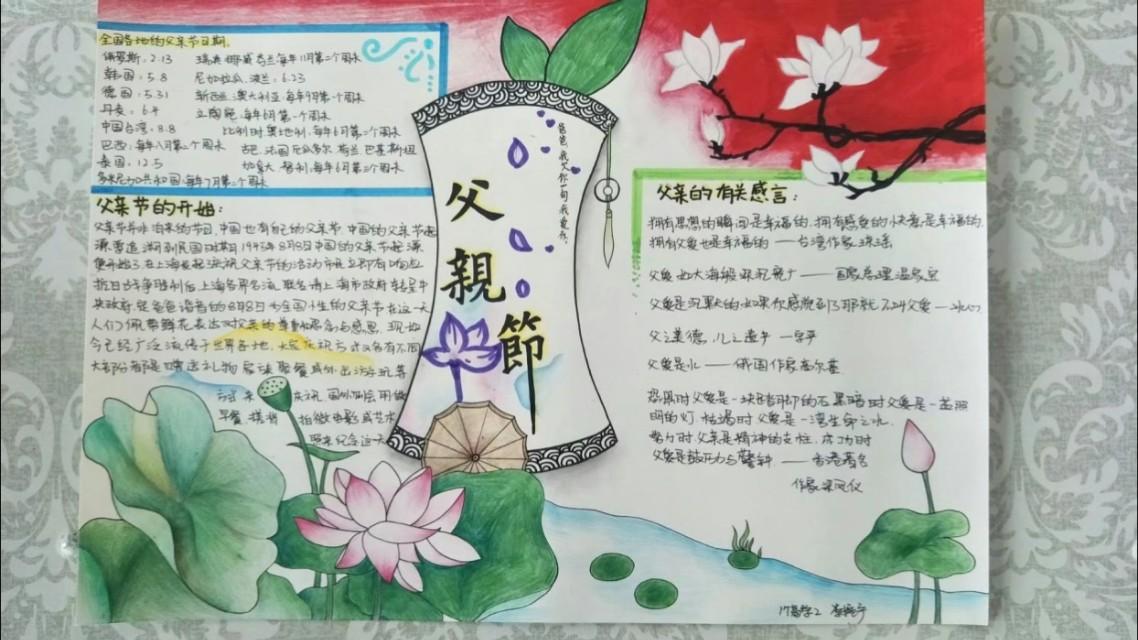 全国各地的父亲节日期。
俄罗斯：2.13
瑞典 挪威 芬兰每年11月第二个周末
韩国：5.8
尼加拉瓜、波兰：6.23
德国：5.31
新西兰 澳大利亚：每年9月第一个周末
丹麦：6.4
立陶宛：每年6月第一个周末
中国台湾：8.8
比利时 奥地利：每年6月第二个周末
巴西：每年八月第二个周末
古巴 法国 厄瓜多尔 荷兰 巴基斯坦
泰国：12.5
加拿大 智利：每年6月第三个周末
多米尼加共和国：每年7月第二个周末
父亲节的开始：
父亲节并非 的节日，中国也有自己的父亲节，中国的父亲节起
源要追溯到民国时期，1945年8月8日中国的父亲节起源
便开始了，在上海发起了庆祝父亲节的活动市民立即有响应
抗日战争胜利后，上海各界名流，联名请上海市政府转呈中
央政府，定爸爸谐音的8月8日为全国性的父亲节在这一天
人们佩带鲜花表达对父亲的尊重 与感恩。现如
今已经广泛流传于世界各地，庆祝方式又各有不同
大部份都是赠送礼物 家族聚餐或外出游玩等
庆祝，国外则会用做
早餐、 拍微电影或艺术
来纪念这一天
父親節
爸爸，我欠你一句，我爱你。
父亲的有关感言：
拥有思想的瞬间是幸福的，拥有感受的快意是幸福的，
拥有父爱也是幸福的——台湾作家琼瑶
父爱如大海般 宽广——国家总理温家宝
父爱是沉默的，如果你感觉到了那就不叫父爱——冰心
父之美德，儿之遗产——字严
父爱是 ——俄国作家高尔基
恐惧时父爱是一块踏脚的石，黑暗时父爱是一盏照
明的灯，枯竭时父爱是一湾生命之水，
努力时父亲是精神的支柱，成功时
父爱是鼓励与警钟——香港著名
作家梁凤仪